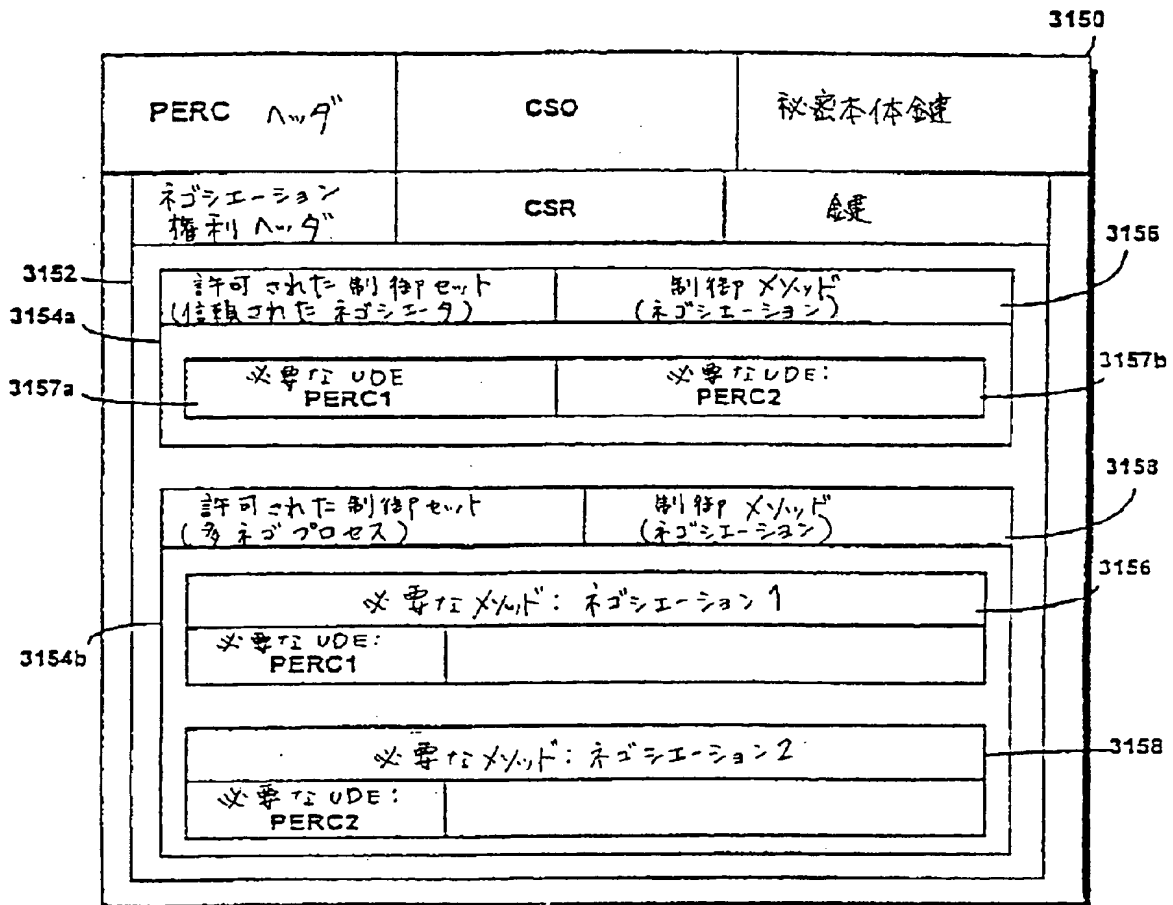 3150
PERC ヘッダ
CSO
秘密本体鍵
ネゴシエーション
権利 ヘッダ
CSR
鍵
3155
3152
許可された制御セット
(信頼されたネゴシエータ)
制御メソッド
(ネゴシエーション)
3154a
3157a
必要な UDE
PERC1
必要なUDE:
PERC2
3157b
3153
許可された制御セット
(多ネゴプロセス)
制御メソッド
(ネゴシエーション)
3156
必要なメソッド: ネゴシエーション1
3154b
必要な UDE:
PERC1
必要なメソッド: ネゴシエーション2
3158
必要な UDE:
PERC2